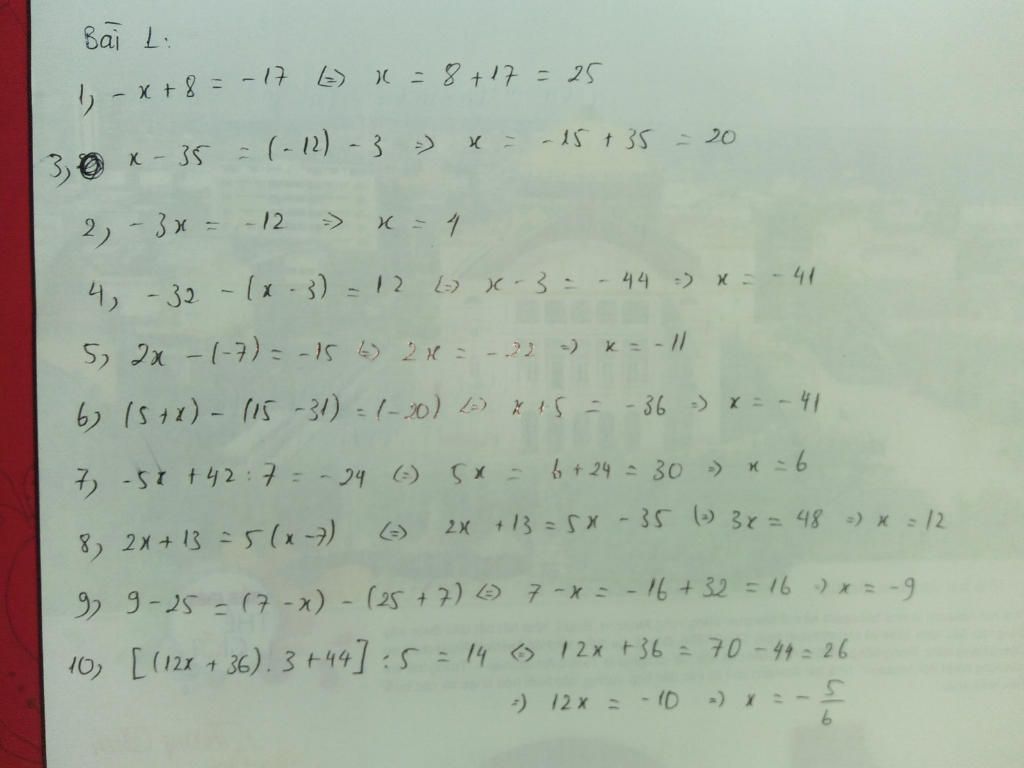 Bài 1:
1, - x + 8 = -17 (=) x = 8 + 17 = 25
3, x - 35 = (-12) - 3 => x = -15 + 35 = 20
2, - 3x = -12 => x = 4
4, -32 - (x - 3) = 12 (=) x - 3 = - 44 => x = - 41
5, 2x - (-7) = -15 (=) 2x = - 22 => x = - 11
6, (5 + x) - (15 - 31) = (-20) (=) x + 5 = - 36 => x = - 41
7, -5x + 42 : 7 = - 24 (=) 5x = 6 + 24 = 30 => x = 6
8, 2x + 13 = 5 (x - 7) (=) 2x + 13 = 5x - 35 (=) 3x = 48 => x = 12
9, 9 - 25 = (7 - x) - (25 + 7) (=) 7 - x = - 16 + 32 = 16 => x = - 9
10, [(12x + 36) . 3 + 44] : 5 = 14 (=) 12x + 36 = 70 - 44 = 26
=> 12x = - 10 => x = - 5/6